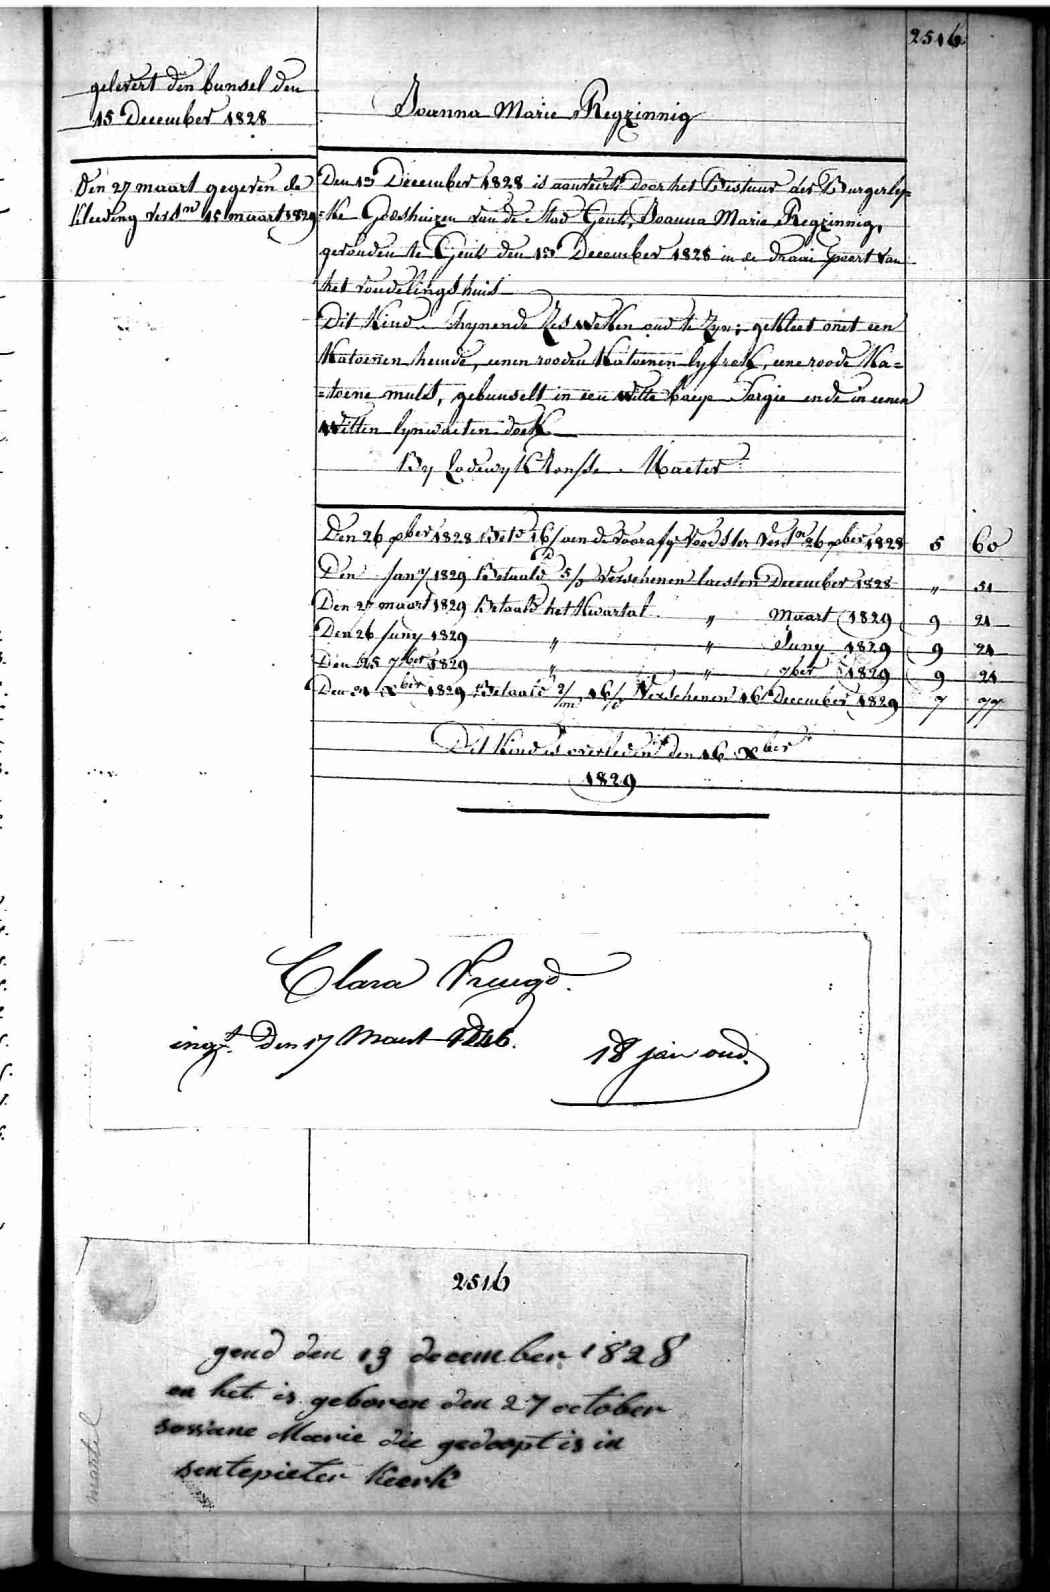 2516
gelevert den bunsel den
15 December 1828
Joanna Marie Regzinnig
Den 27 maart gegeven de
Kleeding versn 15 maart 1829
Den 13 December 1828 is aanveird door het Bestuur der Burgerly=
=ke Godshuizen van de Stad Gent, Joanna Marie Regzinnig,
gevonden te Gent den 13 December 1828 in de draai poort van
het vondelingshuis
Dit Kind schynende zes weken oud te zyn; gekleet met een
Katoenen hemde, eenen rooden Katoenen lyfrok, eene roode Ka=
=toene muts, gebunselt in een witte baeye Sargie ende in eenen
witten lynwaeten doek
By Lodewyk Maeter
Den 26 xber 1828 Betd 16/ aen de voorafge voedster versn 26 xber 1828 5 60
Den Jany 1829 Betaald 5/ verschenen laesten December 1828 " 51
Den 27 maart 1829 Betaald het Kwartal " Maart 1829 9 21
Den 26 Juny 1829 " " Juny 1829 9 21
Den 25 7ber 1829 " " 7ber 1829 9 21
Den 31 xber 1829 Betaald 2/m 16/ Verschenen 16 December 1829 7 77
Dit Kind is overleden den 16 xber
1829
Clara Vreugd.
ingt. Den 17 Maart 1846.
18 jaar oud.
2516
gend den 13 december 1828
en het is geboren den 27 october
Marie die gedoopt is in
sentepieter Kerk
martel